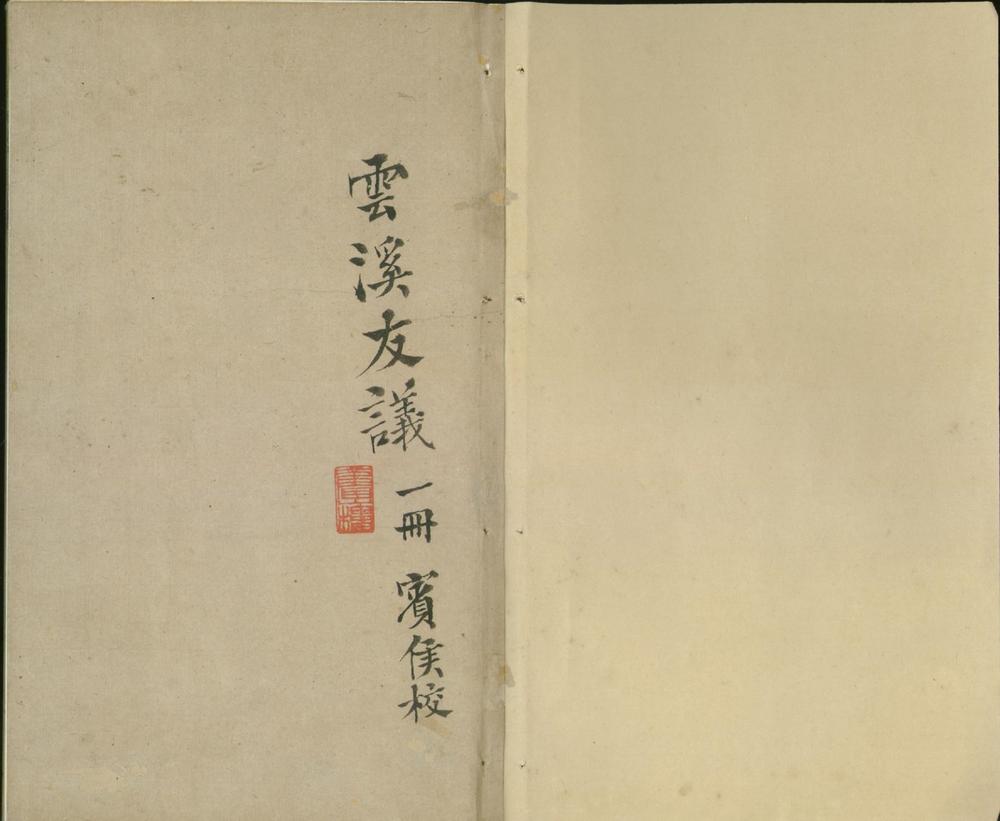 雲溪友議
一冊 賓侯校